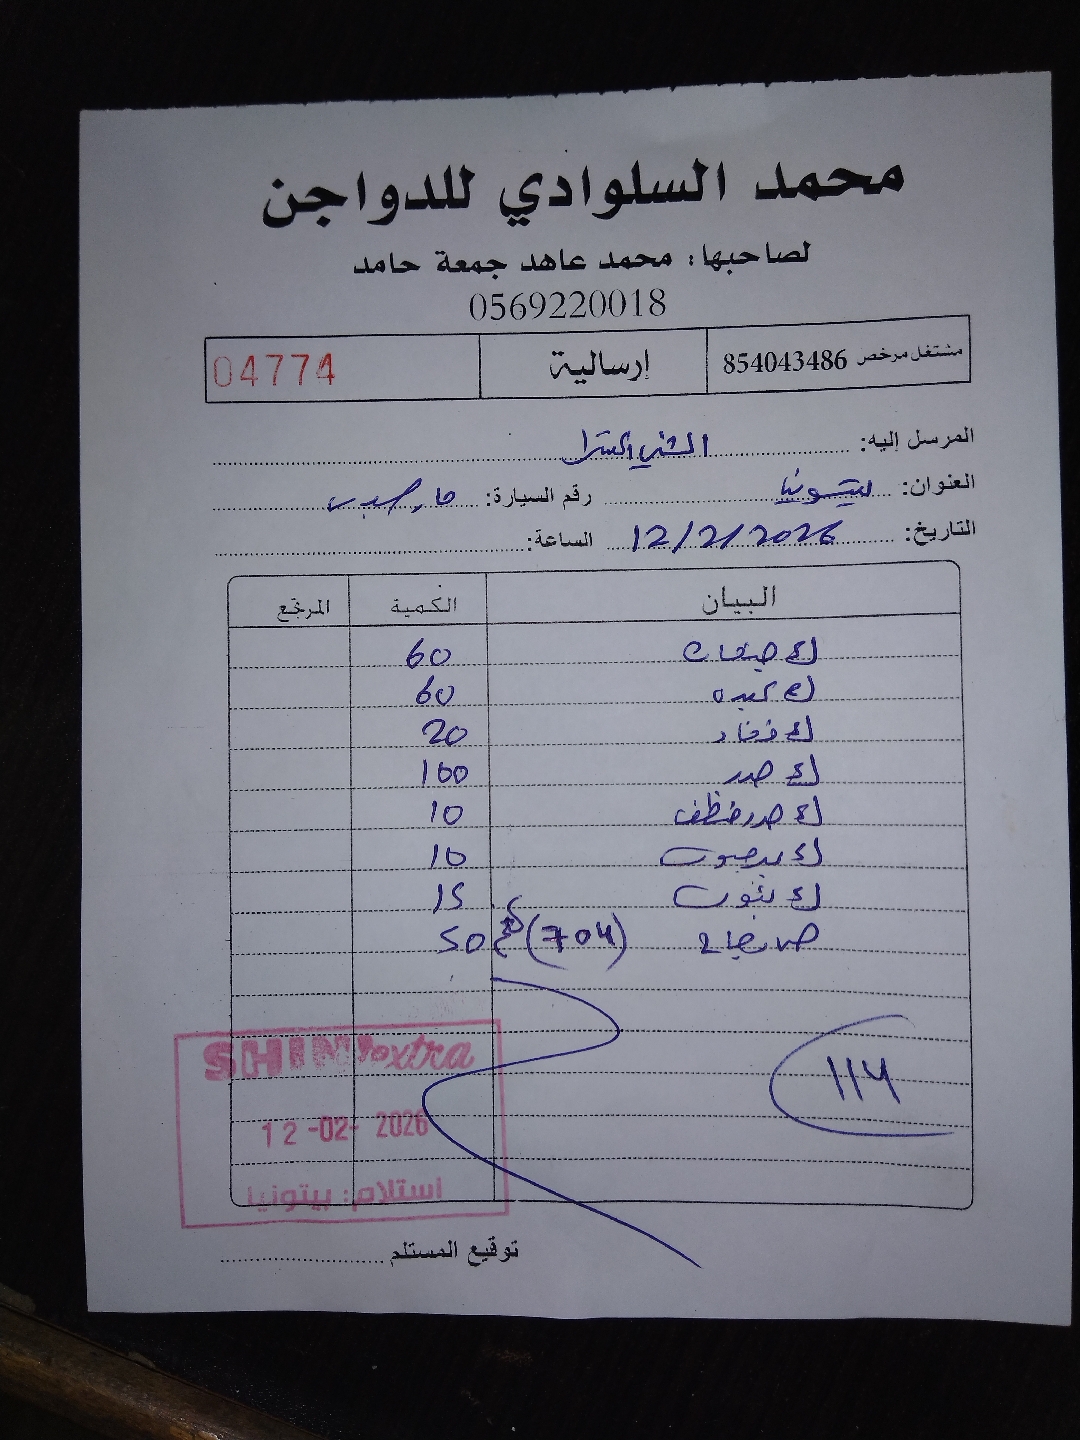 محمد السلوادي للدواجن
لصاحبها: محمد عاهد جمعة حامد
0569220018
مشتغل مرخص 854043486 إرسالية 04774
المرسل إليه: الشني اكسترا
العنوان: بيتونيا رقم السيارة:
التاريخ: 12/2/2026 الساعة:
البيان الكمية المرتجع
60
كغ كبده 60
20
كغ صدر 100
كغ صدر 10
10
15
(704) 50
114
SHINI extra
12-02-2026
استلام: بيتونيا
توقيع المستلم